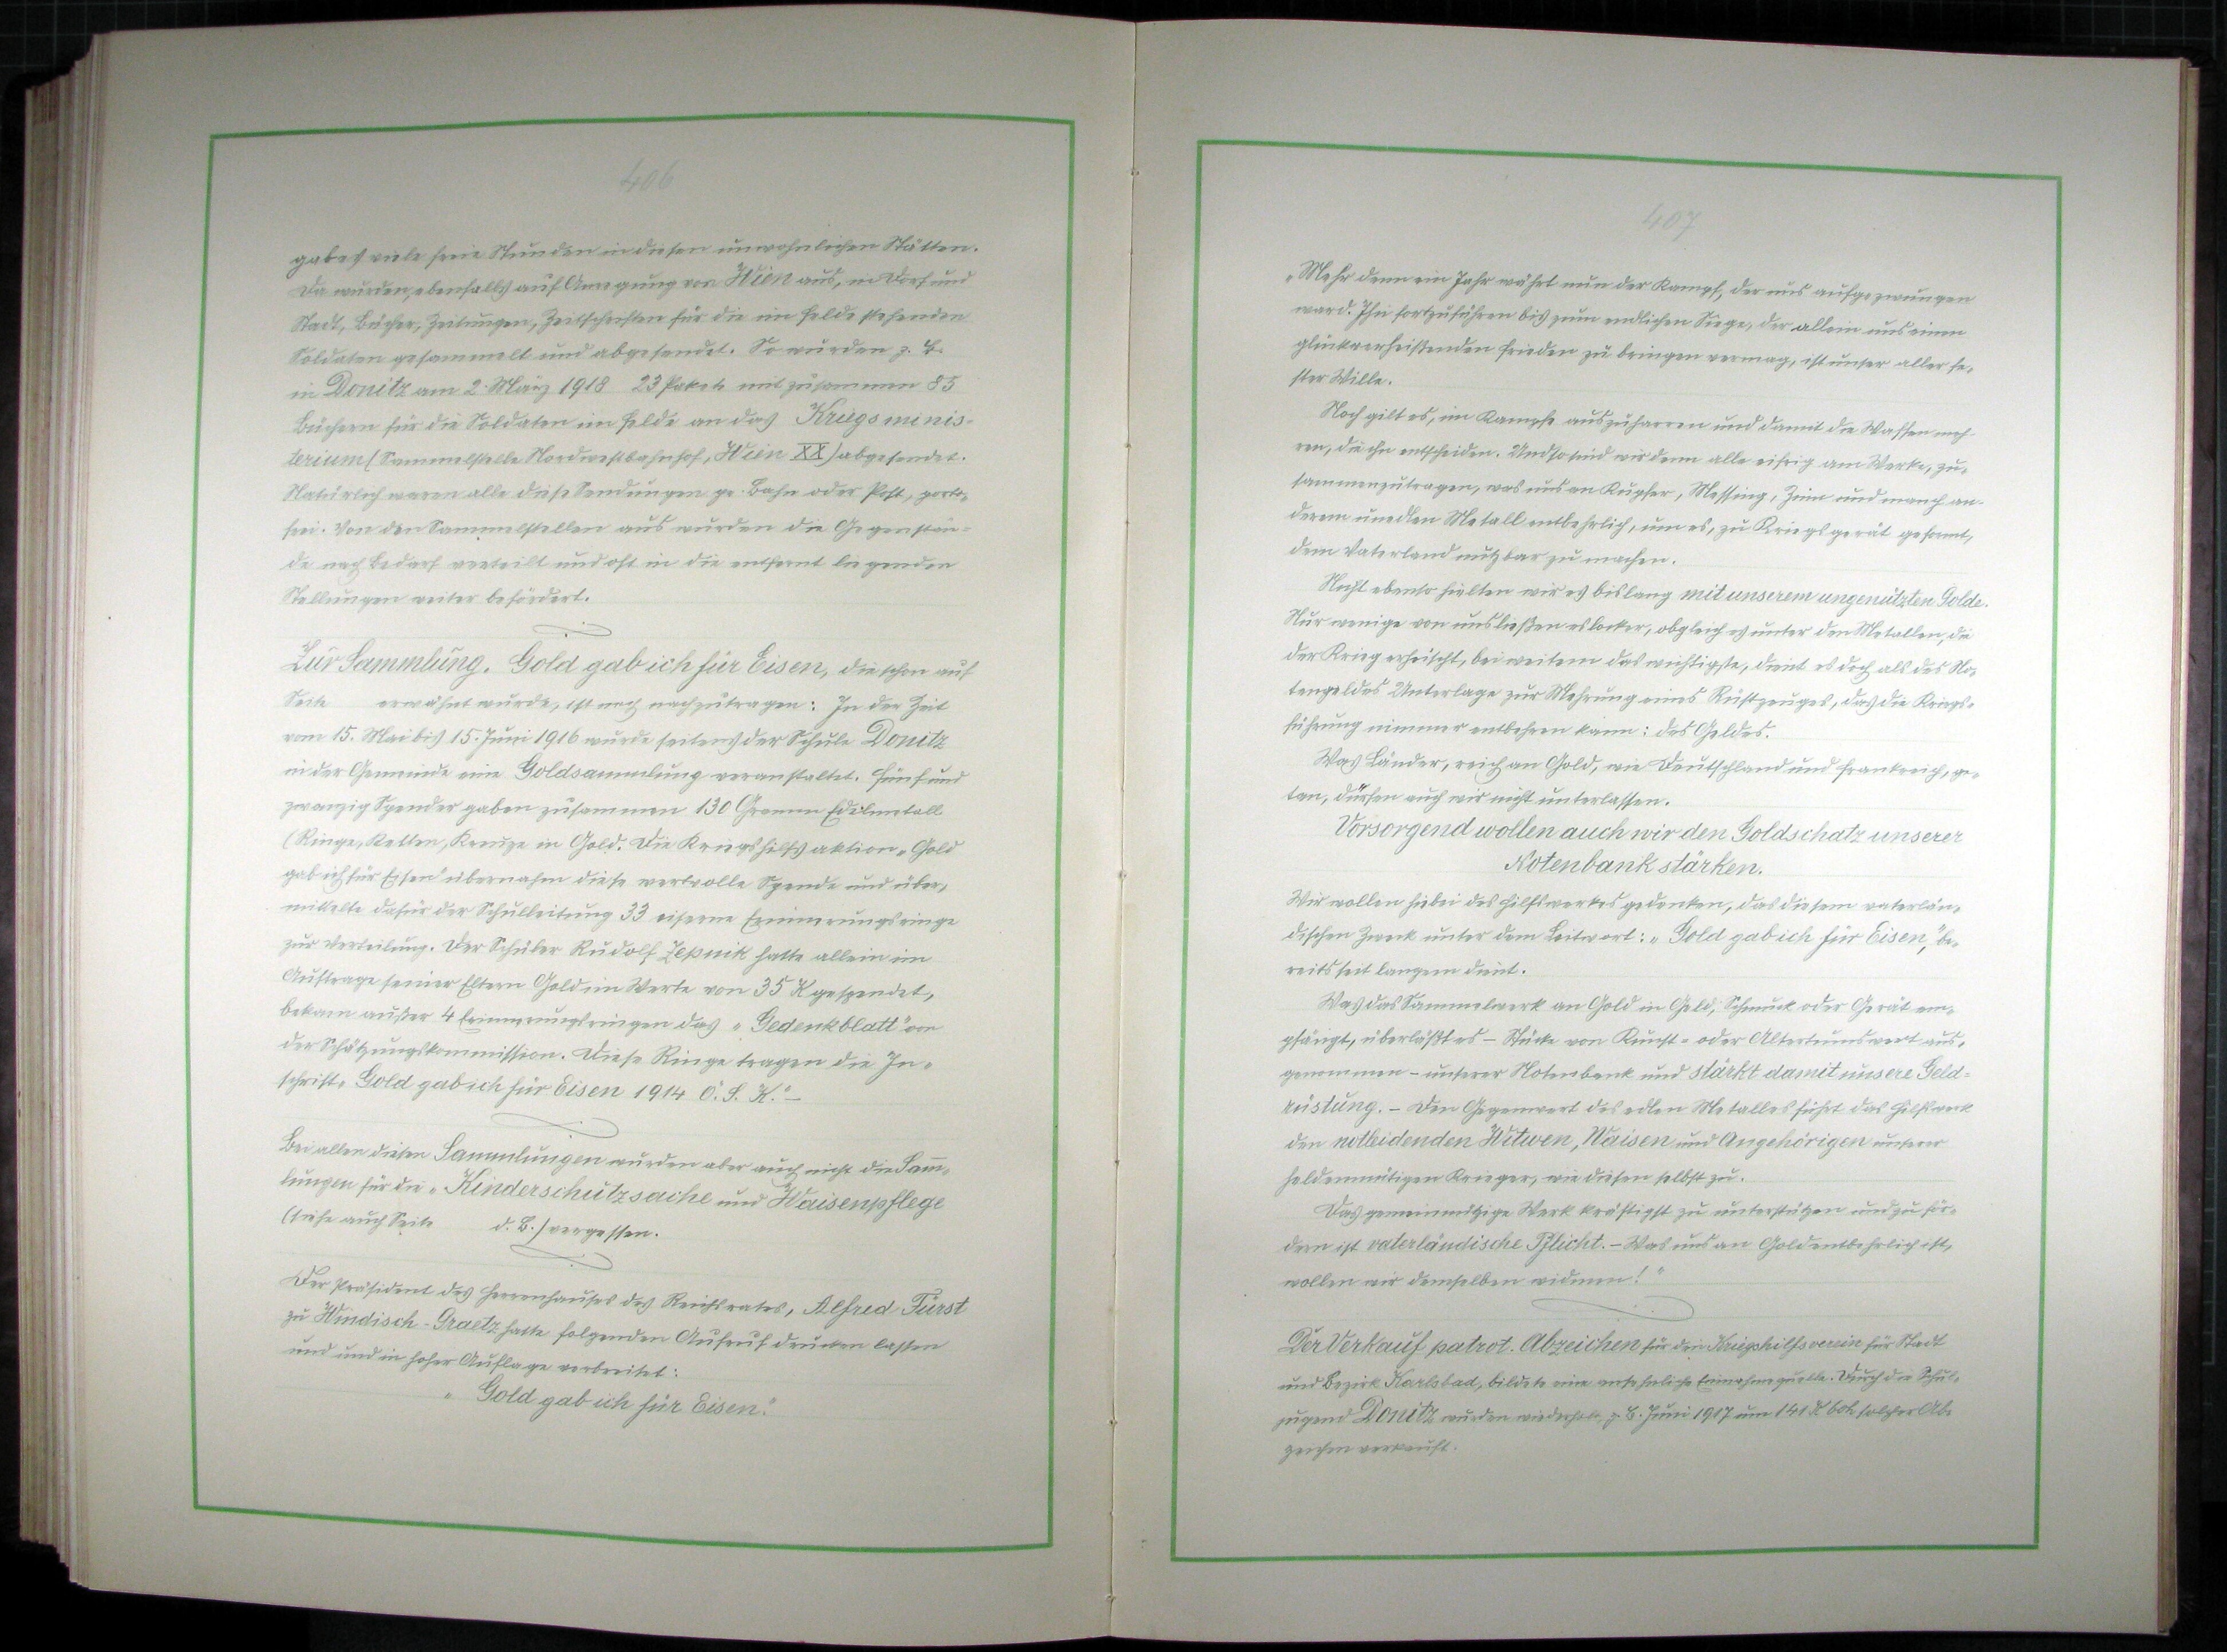 406
gab es viele freie Stunden in diesen unwohnlichen Stätten.
Da wurden, ebenfalls auf Anregung von Wien aus, in Dorf und
Stadt, Bücher, Zeitungen, Zeitschriften für die im Felde stehenden
Soldaten gesammelt und abgesendet. So wurden z. B.
in Donitz am 2. März 1918 23 Pakete mit zusammen 85
Büchern für die Soldaten im Felde an das Kriegsminis-
terium (Sammelstelle Nordwestbahnhof, Wien XX) abgesendet.
Natürlich waren alle diese Sendungen pr. Bahn oder Post, porto-
frei. Von den Sammelstellen aus wurden die Gegenstän-
de nach Bedarf verteilt und oft in die entfernt liegenden
Stellungen weiter befördert.
Zur Sammlung. Gold gab ich für Eisen, die schon auf
Seite erwähnt wurde, ist noch nachzutragen: In der Zeit
vom 15. Mai bis 15. Juni 1916 wurde seitens der Schule Donitz
in der Gemeinde eine Goldsammlung veranstaltet. Fünf und
zwanzig Spender gaben zusammen 130 Gramm Edelmetall
(Ringe, Ketten, Kreuze in Gold. Die Kriegshilfsaktion „Gold
gab ich für Eisen" übernahm diese wertvolle Spende und über-
mittelte dafür der Schulleitung 33 eiserne Erinnerungsringe
zur Verteilung. Der Schüler Rudolf hatte allein im
Auftrage seiner Eltern Gold im Werte von 35 K gespendet,
bekam außer 4 Erinnerungsringen das „Gedenkblatt" von
der Schätzungskommission. Diese Ringe tragen die In-
schrift „Gold gab ich für Eisen 1914 Ö. S. K." –
Bei allen diesen Sammlungen wurden aber auch nicht die Sam̄-
lungen für die „Kinderschutzsache und Waisenpflege
(siehe auch Seite d. B.) vergessen.
Der Präsident des Herrenhauses des Reichsrates, Alfred Fürst
zu Windisch-Graetz hatte folgenden Aufruf drucken lassen
und und in hoher Auflage verbreitet:
„Gold gab ich für Eisen."
407
„Mehr denn ein Jahr währt nun der Kampf, der uns aufgezwungen
ward. Ihn fortzuführen bis zum endlichen Siege, der allein uns einen
glückverheißenden Frieden zu bringen vermag, ist unser aller fe-
ster Wille.
Noch gilt es, im Kampfe auszuharren und damit die Waffen meh-
ren, die ihn entscheiden. Und so sind wir denn alle eifrig am Werke, zu-
sammenzutragen, was uns an Kupfer, Messing, Zinn und manch an-
derem unedlen Metall entbehrlich, um es, zu Kriegsgerät geformt,
dem Vaterland nutzbar zu machen.
Nicht ebenso hielten wir es bislang mit unserem ungenützten Golde.
Nur wenige von uns ließen es locker, obgleich es unter den Metallen, die
der Krieg erheischt, bei weitem das wichtigste, dient es doch als des No-
tengeldes Unterlage zur Mehrung eines Rüstzeuges, das die Kriegs-
führung nimmer entbehren kann: des Geldes.
Was Länder, reich an Gold, wie Deutschland und Frankreich, ge-
tan, dürfen auch wir nicht unterlassen.
Vorsorgend wollen auch wir den Goldschatz unserer
Notenbank stärken.
Wir wollen hiebei des Hilfswerkes gedenken, das diesem vaterlän-
dischen Zweck unter dem Leitwort: „Gold gab ich für Eisen," be-
reits seit langem dient.
Was das Sammelwerk an Gold in Geld, Schmuck oder Gerät em-
pfängt, überläßt es – Stücke von Kunst- oder Altertumswert aus-
genommen – unserer Notenbank und stärkt damit unsere Geld-
rüstung. – Den Gegenwert des edlen Metalles führt das Hilfswerk
den notleidenden Witwen, Waisen und Angehörigen unserer
heldenmütigen Krieger, wie diesen selbst zu.
Das gemeinnützige Werk kräftigst zu unterstützen und zu för-
dern ist vaterländische Pflicht. – Was uns an Gold entbehrlich ist,
wollen wir demselben widmen!"
Der Verkauf patrot. Abzeichen für den Kriegshilfsverein für Stadt
und Bezirk Karlsbad, bildete eine ansehnliche Einnahmequelle. Durch die Schul-
jugend Donitz wurden wiederholt, z. B. Juni 1917 um 141 K 60h solcher Ab-
zeichen verkauft.